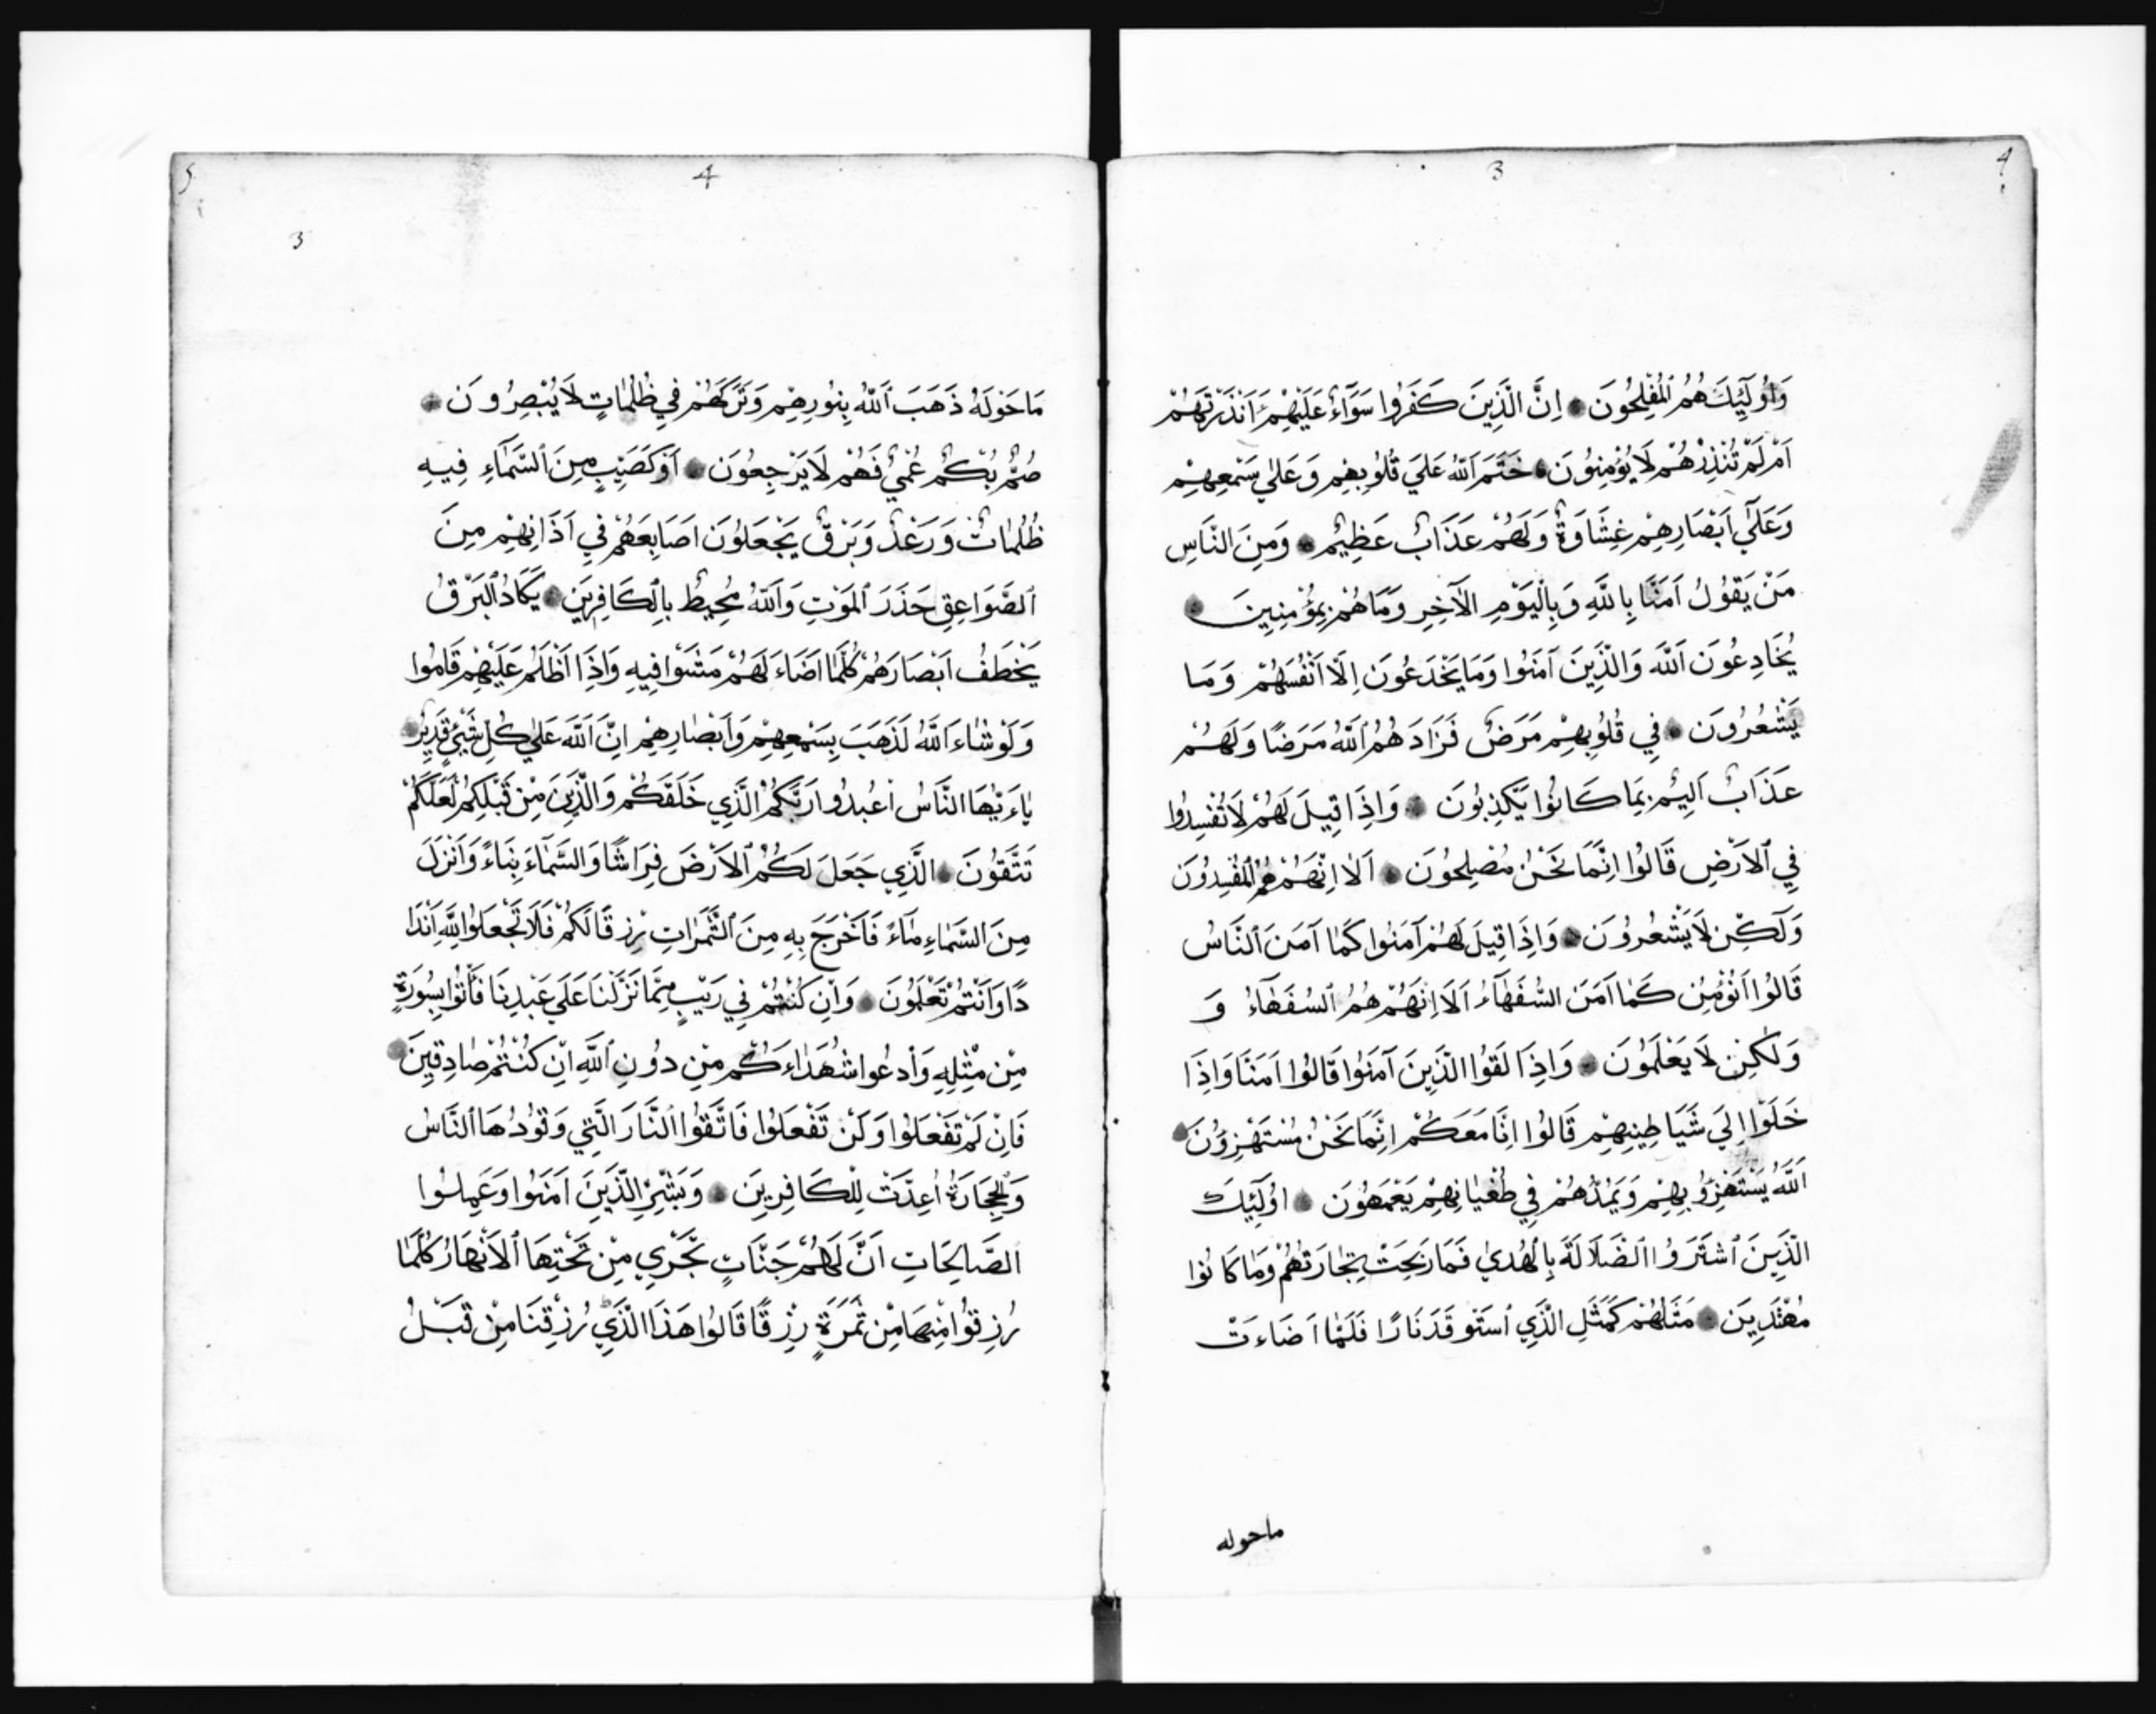 4
3
وَاُولَٓئِكَ هُمُ ٱلْمُفْلِحُونَ اِنَّ الَّذِينَ كَفَرُوا سَوَٓاءٌ عَلَيْهِمْ ءَاَنْذَرْتَهُمْ
اَمْ لَمْ تُنْذِرْهُمْ لَا يُؤْمِنُونَ خَتَمَ ٱللّٰهُ عَلَي قُلُوبِهِم وَعَلٰي سَمْعِهِمْ
وَعَلَٓي اَبْصَارِهِمْ غِشَاوَةٌ وَلَهُمْ عَذَابٌ عَظِيمٌ وَمِنَ النَّاسِ
مَنْ يَقُولُ اَمَنَّا بِاللّٰهِ وَبِالْيَوْمِ الْاٰخِرِ وَمَاهُمْ بِمُؤْمِنِينَ
يُخَادِعُونَ ٱللّٰهَ وَالَّذِينَ آمَنُوا وَمَا يَخْدَعُونَ اِلَّا اَنْفُسَهُمْ وَمَا
يَشْعُرُونَ فِي قُلُوبِهِمْ مَرَضٌ فَزَادَهُمُ ٱللّٰهُ مَرَضًا وَلَهُمْ
عَذَابٌ اَلِيمٌ بِمَا كَانُوا يَكْذِبُونَ وَاِذَا قِيلَ لَهُمْ لَا تُفْسِدُوا
فِي ٱلْاَرْضِ قَالُوا اِنَّمَا نَحْنُ مُصْلِحُونَ اَلَا اِنَّهُمْ هُمُ ٱلْمُفْسِدُونَ
وَلَٓكِنْ لَا يَشْعُرُونَ وَاِذَا قِيلَ لَهُمْ آمَنُوا كَمَا آمَنَ ٱلنَّاسُ
قَالُوا اَنُؤْمِنُ كَمَا اَمَنَ السُّفَهَٓاءُ اَلَا اِنَّهُمْ هُمُ ٱلسُّفَهَٓاءُ وَ
وَلٰكِنْ لَا يَعْلَمُونَ وَاِذَا لَقُوا الَّذِينَ آمَنُوا قَالُوا اَمَنَّا وَاِذَا
خَلَوْا اِلَي شَيَاطِينِهِمْ قَالُوا اِنَّا مَعَكُمْ اِنَّمَا نَحْنُ مُسْتَهْزِؤُنَ
اَللّٰهُ يَسْتَهْزِؤُ بِهِمْ وَيَمُدُّهُمْ فِي طُغْيَانِهِمْ يَعْمَهُونَ اوُلَٓئِكَ
الَّذِينَ ٱشْتَرَوُا ٱلضَّلَالَةَ بِالْهُديٰ فَمَا رَبِحَتْ تِجَارَتُهُمْ وَمَا كَانُوا
مُهْتَدِينَ مَثَلُهُمْ كَمَثَلِ الَّذِي ٱسْتَوْقَدَ نَارًا فَلَمَّا اَضَاءَتْ
ماحوله
5
4
3
مَا حَوْلَهُ ذَهَبَ ٱللّٰهُ بِنُورِهِمْ وَتَرَكَهُمْ فِي ظُلُمَاتٍ لَا يُبْصِرُونَ
صُمٌّ بُكْمٌ عُمْيٌ فَهُمْ لَا يَرْجِعُونَ اَوْ كَصَيِّبٍ مِنَ ٱلسَّمَٓاءِ فِيهِ
ظُلُمَاتٌ وَرَعْدٌ وَبَرْقٌ يَجْعَلُونَ اَصَابِعَهُمْ فِي اَذَانِهِمْ مِنَ
ٱلصَّوَاعِقِ حَذَرَ ٱلْمَوْتِ وَٱللّٰهُ مُحِيطٌ بِالْكَافِرِينَ يَكَادُ ٱلْبَرْقُ
يَخْطَفُ اَبْصَارَهُمْ كُلَّمَا اَضَاءَ لَهُمْ مَشَوْا فِيهِ وَاِذَا اَظْلَمَ عَلَيْهِمْ قَامُوا
وَلَوْ شَاءَ ٱللّٰهُ لَذَهَبَ بِسَمْعِهِمْ وَاَبْصَارِهِمْ اِنَّ ٱللّٰهَ عَلٰي كُلِّ شَيْئٍ قَدِيرٌ
يٰاءَيُّهَا النَّاسُ اعْبُدُوا رَبَّكُمُ الَّذِي خَلَقَكُمْ وَالَّذِينَ مِنْ قَبْلِكُمْ لَعَلَّكُمْ
تَتَّقُونَ الَّذِي جَعَلَ لَكُمُ ٱلْاَرْضَ فِرَاشًا وَالسَّمَاءَ بِنَاءً وَاَنْزَلَ
مِنَ السَّمَاءِ مَاءً فَاَخْرَجَ بِهِ مِنَ ٱلثَّمَرَاتِ رِزْقًا لَكُمْ فَلَا تَجْعَلُوا لِلّٰهِ اَنْدَا
دًا وَاَنْتُمْ تَعْلَمُونَ وَاِنْ كُنْتُمْ فِي رَيْبٍ مِمَّا نَزَّلْنَا عَلَي عَبْدِنَا فَأْتُوا بِسُورَةٍ
مِنْ مِثْلِهِ وَادْعُوا شُهَدَاءَكُمْ مِنْ دُونِ ٱللّٰهِ اِنْ كُنْتُمْ صَادِقِينَ
فَاِنْ لَمْ تَفْعَلُوا وَلَنْ تَفْعَلُوا فَاتَّقُوا ٱلنَّارَ الَّتِي وَقُودُهَا ٱلنَّاسُ
وَٱلْحِجَارَةُ اُعِدَّتْ لِلْكَافِرِينَ وَبَشِّرِ الَّذِينَ اَمَنُوا وَعَمِلُوا
ٱلصَّالِحَاتِ اَنَّ لَهُمْ جَنَّاتٍ تَجْرِي مِنْ تَحْتِهَا ٱلْاَنْهَارُ كُلَّمَا
رُزِقُوا مِنْهَا مِنْ ثَمَرَةٍ رِزْقًا قَالُوا هَذَا الَّذِي رُزِقْنَا مِنْ قَبْلُ